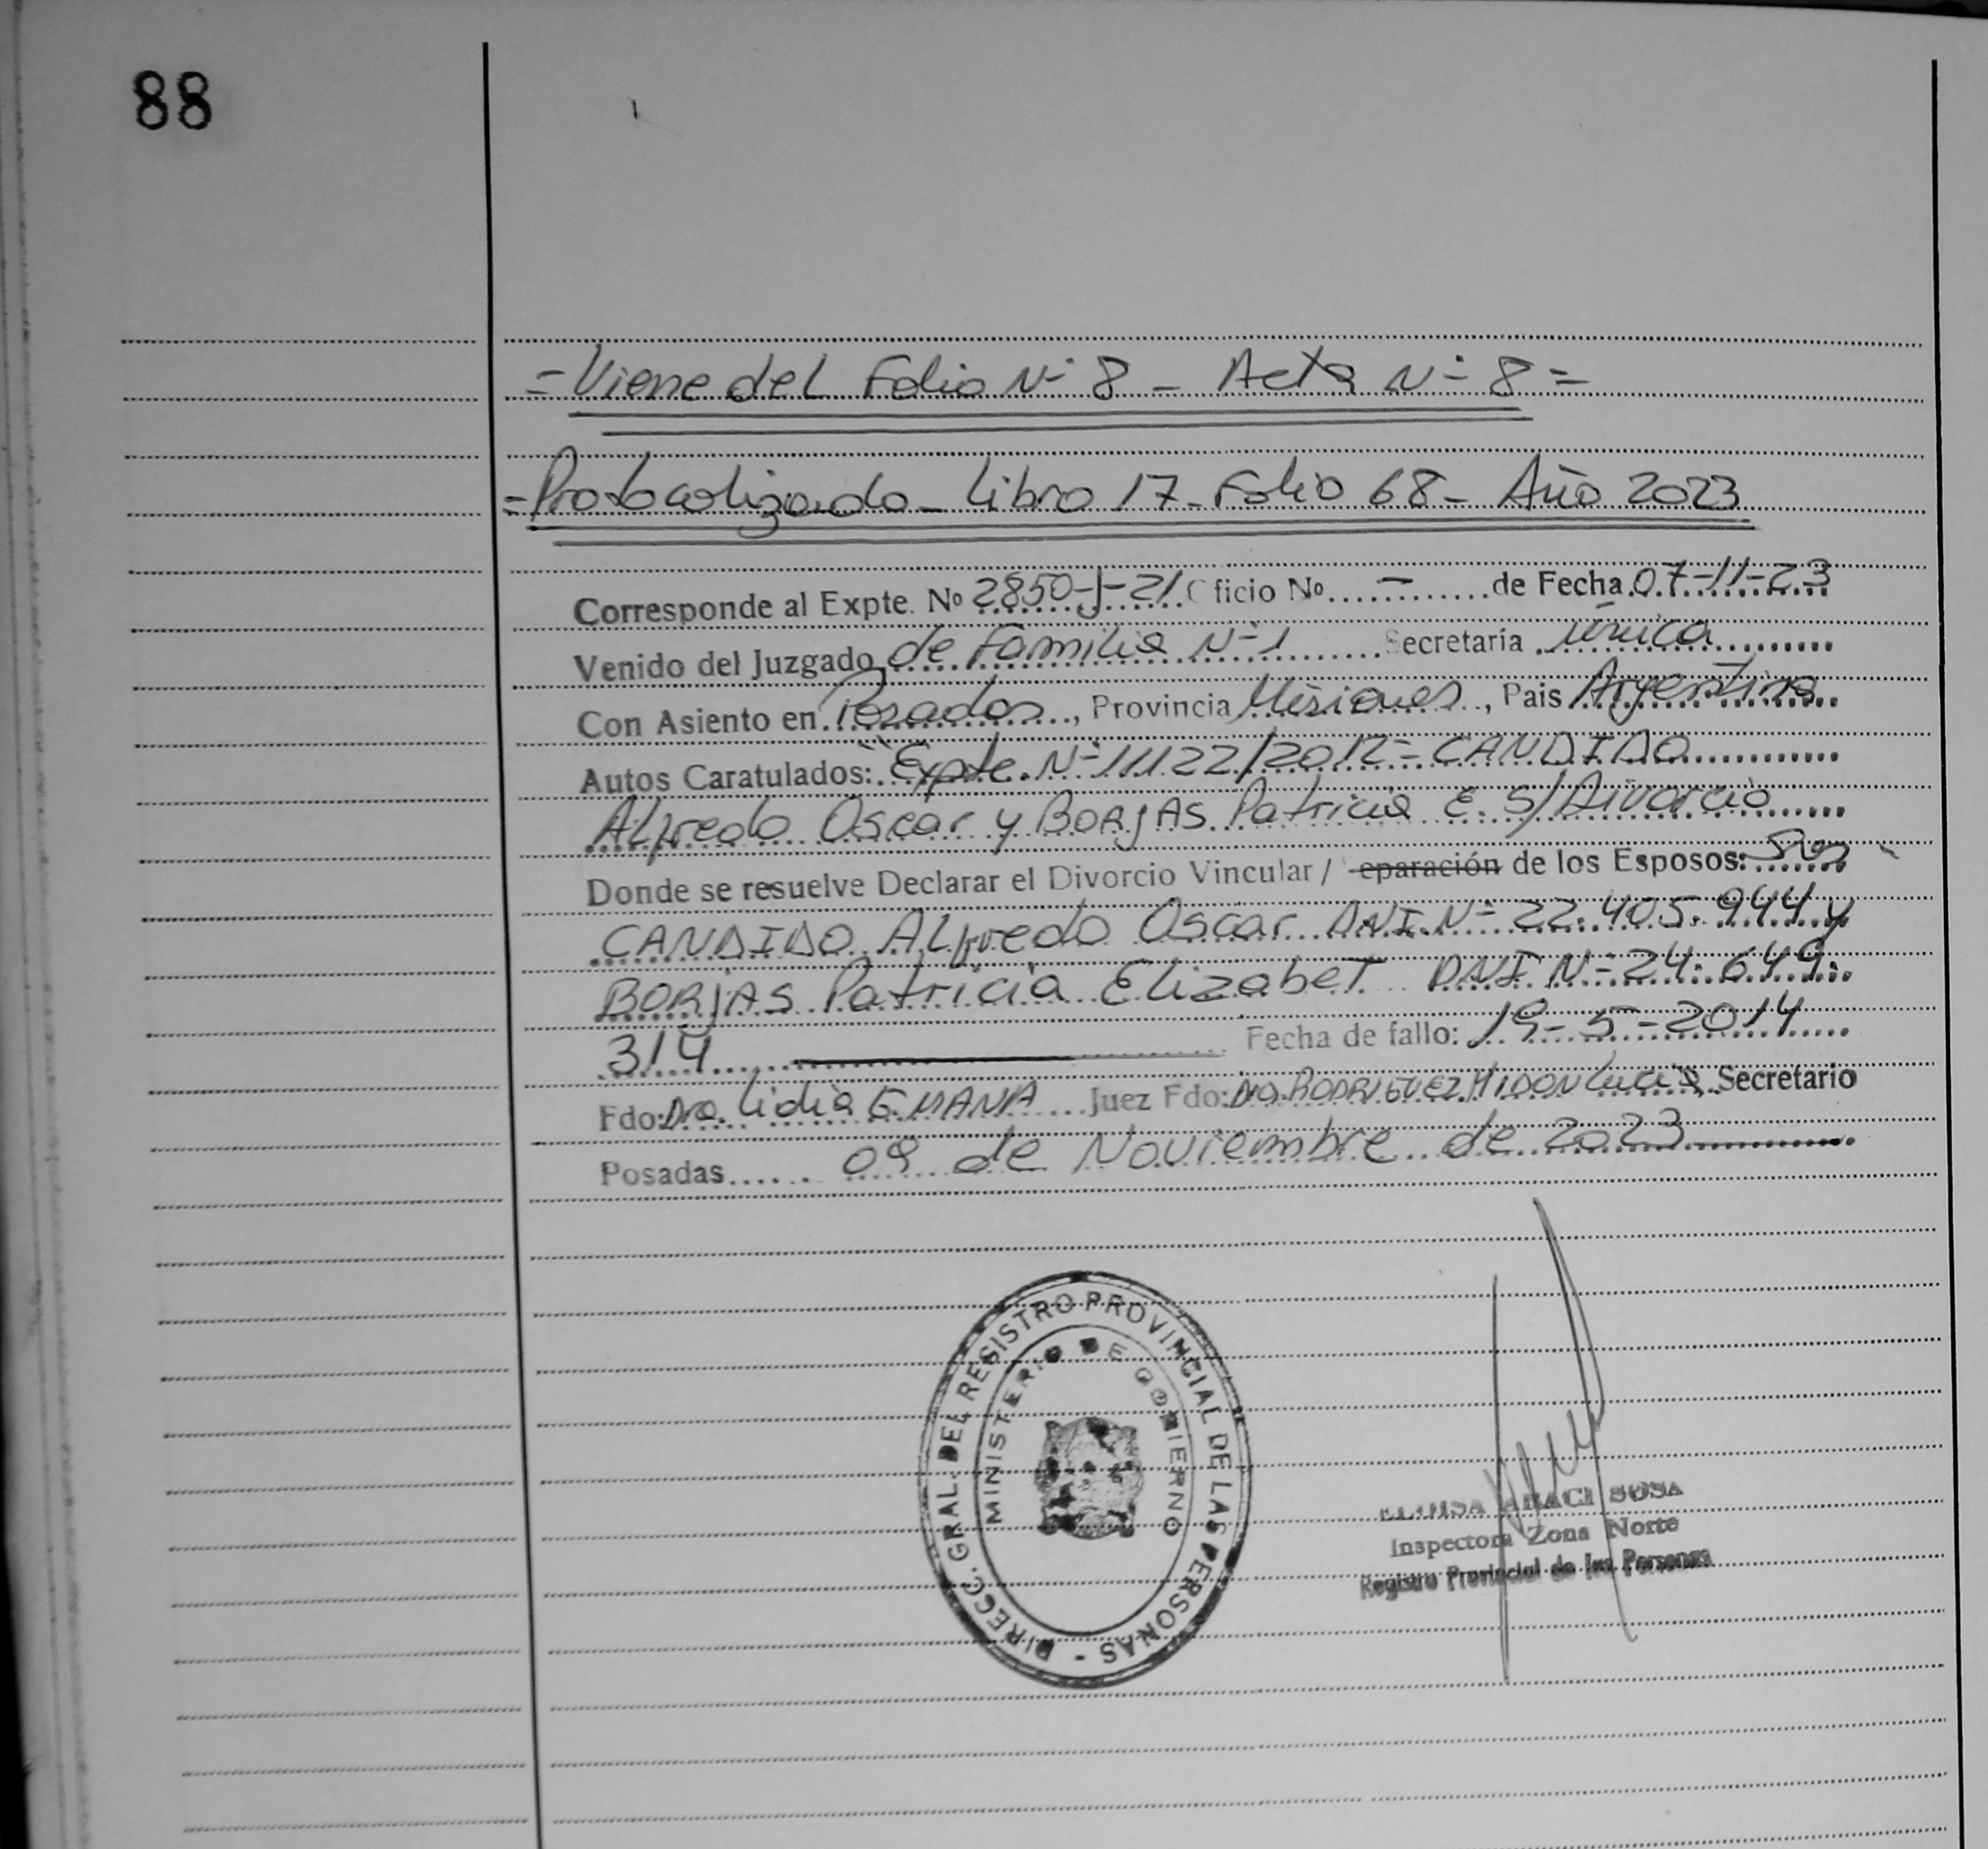 88
= Viene del Folio Nº 8 - Acta Nº 8 =
= Protocolizado - Libro 17 - Folio 68 - Año 2023
Corresponde al Expte. Nº 2850-J-21 Oficio Nº - de Fecha 07-11-23
Venido del Juzgado de Familia Nº 1 Secretaría única
Con Asiento en Posadas, Provincia Misiones, Pais Argentina
Autos Caratulados: "Expte. Nº 11122/2012 - CANDIDO
Alfredo Oscar y BORJAS Patricia E. S/Divorcio
Donde se resuelve Declarar el Divorcio Vincular / eparación de los Esposos:
CANDIDO Alfredo Oscar DNI.Nº 22.405.944 y
BORJAS Patricia Elizabet DNI Nº 24.649.
314 Fecha de fallo: 19-5-2014
Fdo: Dra. Lidia E. MANA Juez Fdo: Dra. RODRIGUEZ HIDON Lucia Secretario
Posadas 09 de Noviembre de 2023
DIRECC. GRAL. DEL REGISTRO PROVINCIAL DE LAS PERSONAS -
MINISTERIO DE GOBIERNO
ELOISA ARACI SOSA
Inspectora Zona Norte
Registro Provincial de las Personas